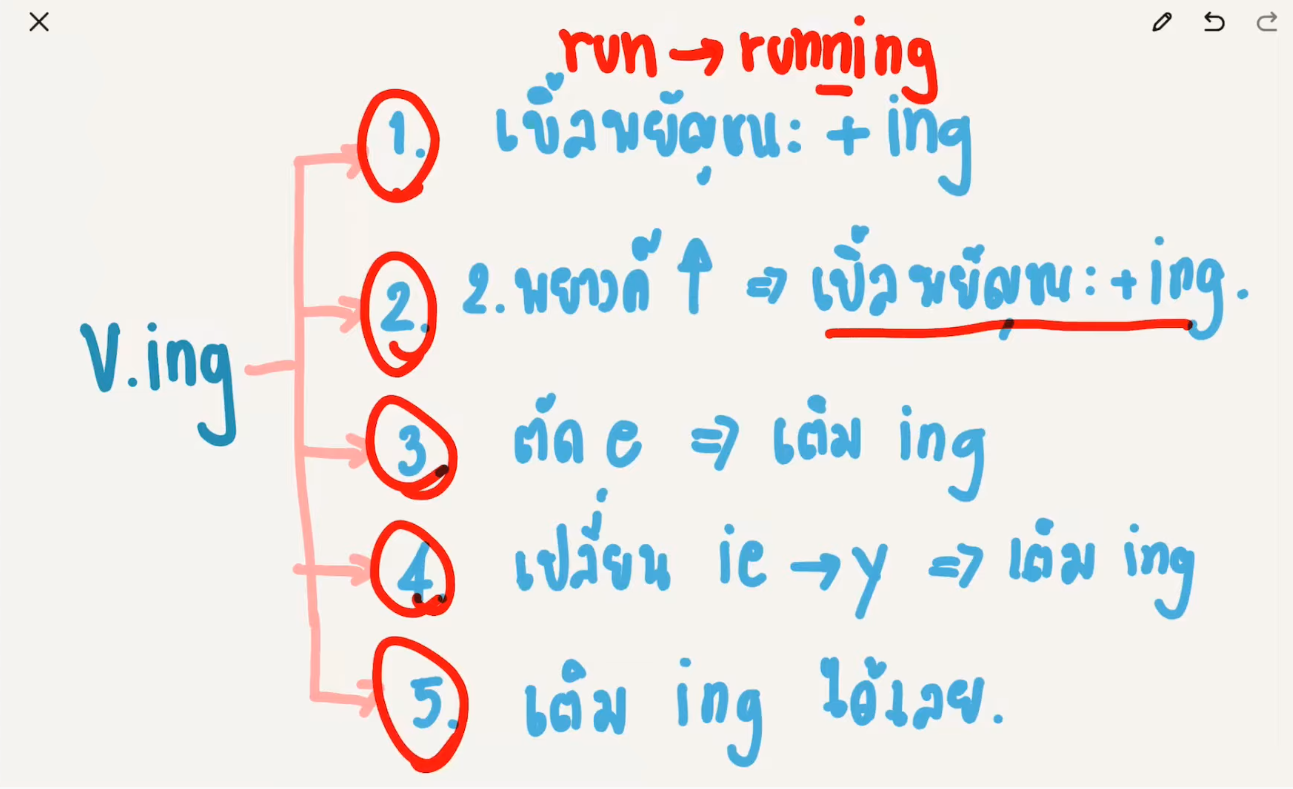 run → running
1. เบิ้ลพยัญชนะ + ing
2. 2.พยางค์ ↑ ⇒ เบิ้ลพยัญชนะ + ing.
V.ing
3. ตัด e ⇒ เติม ing
4. เปลี่ยน ie → y ⇒ เติม ing
5. เติม ing ได้เลย.